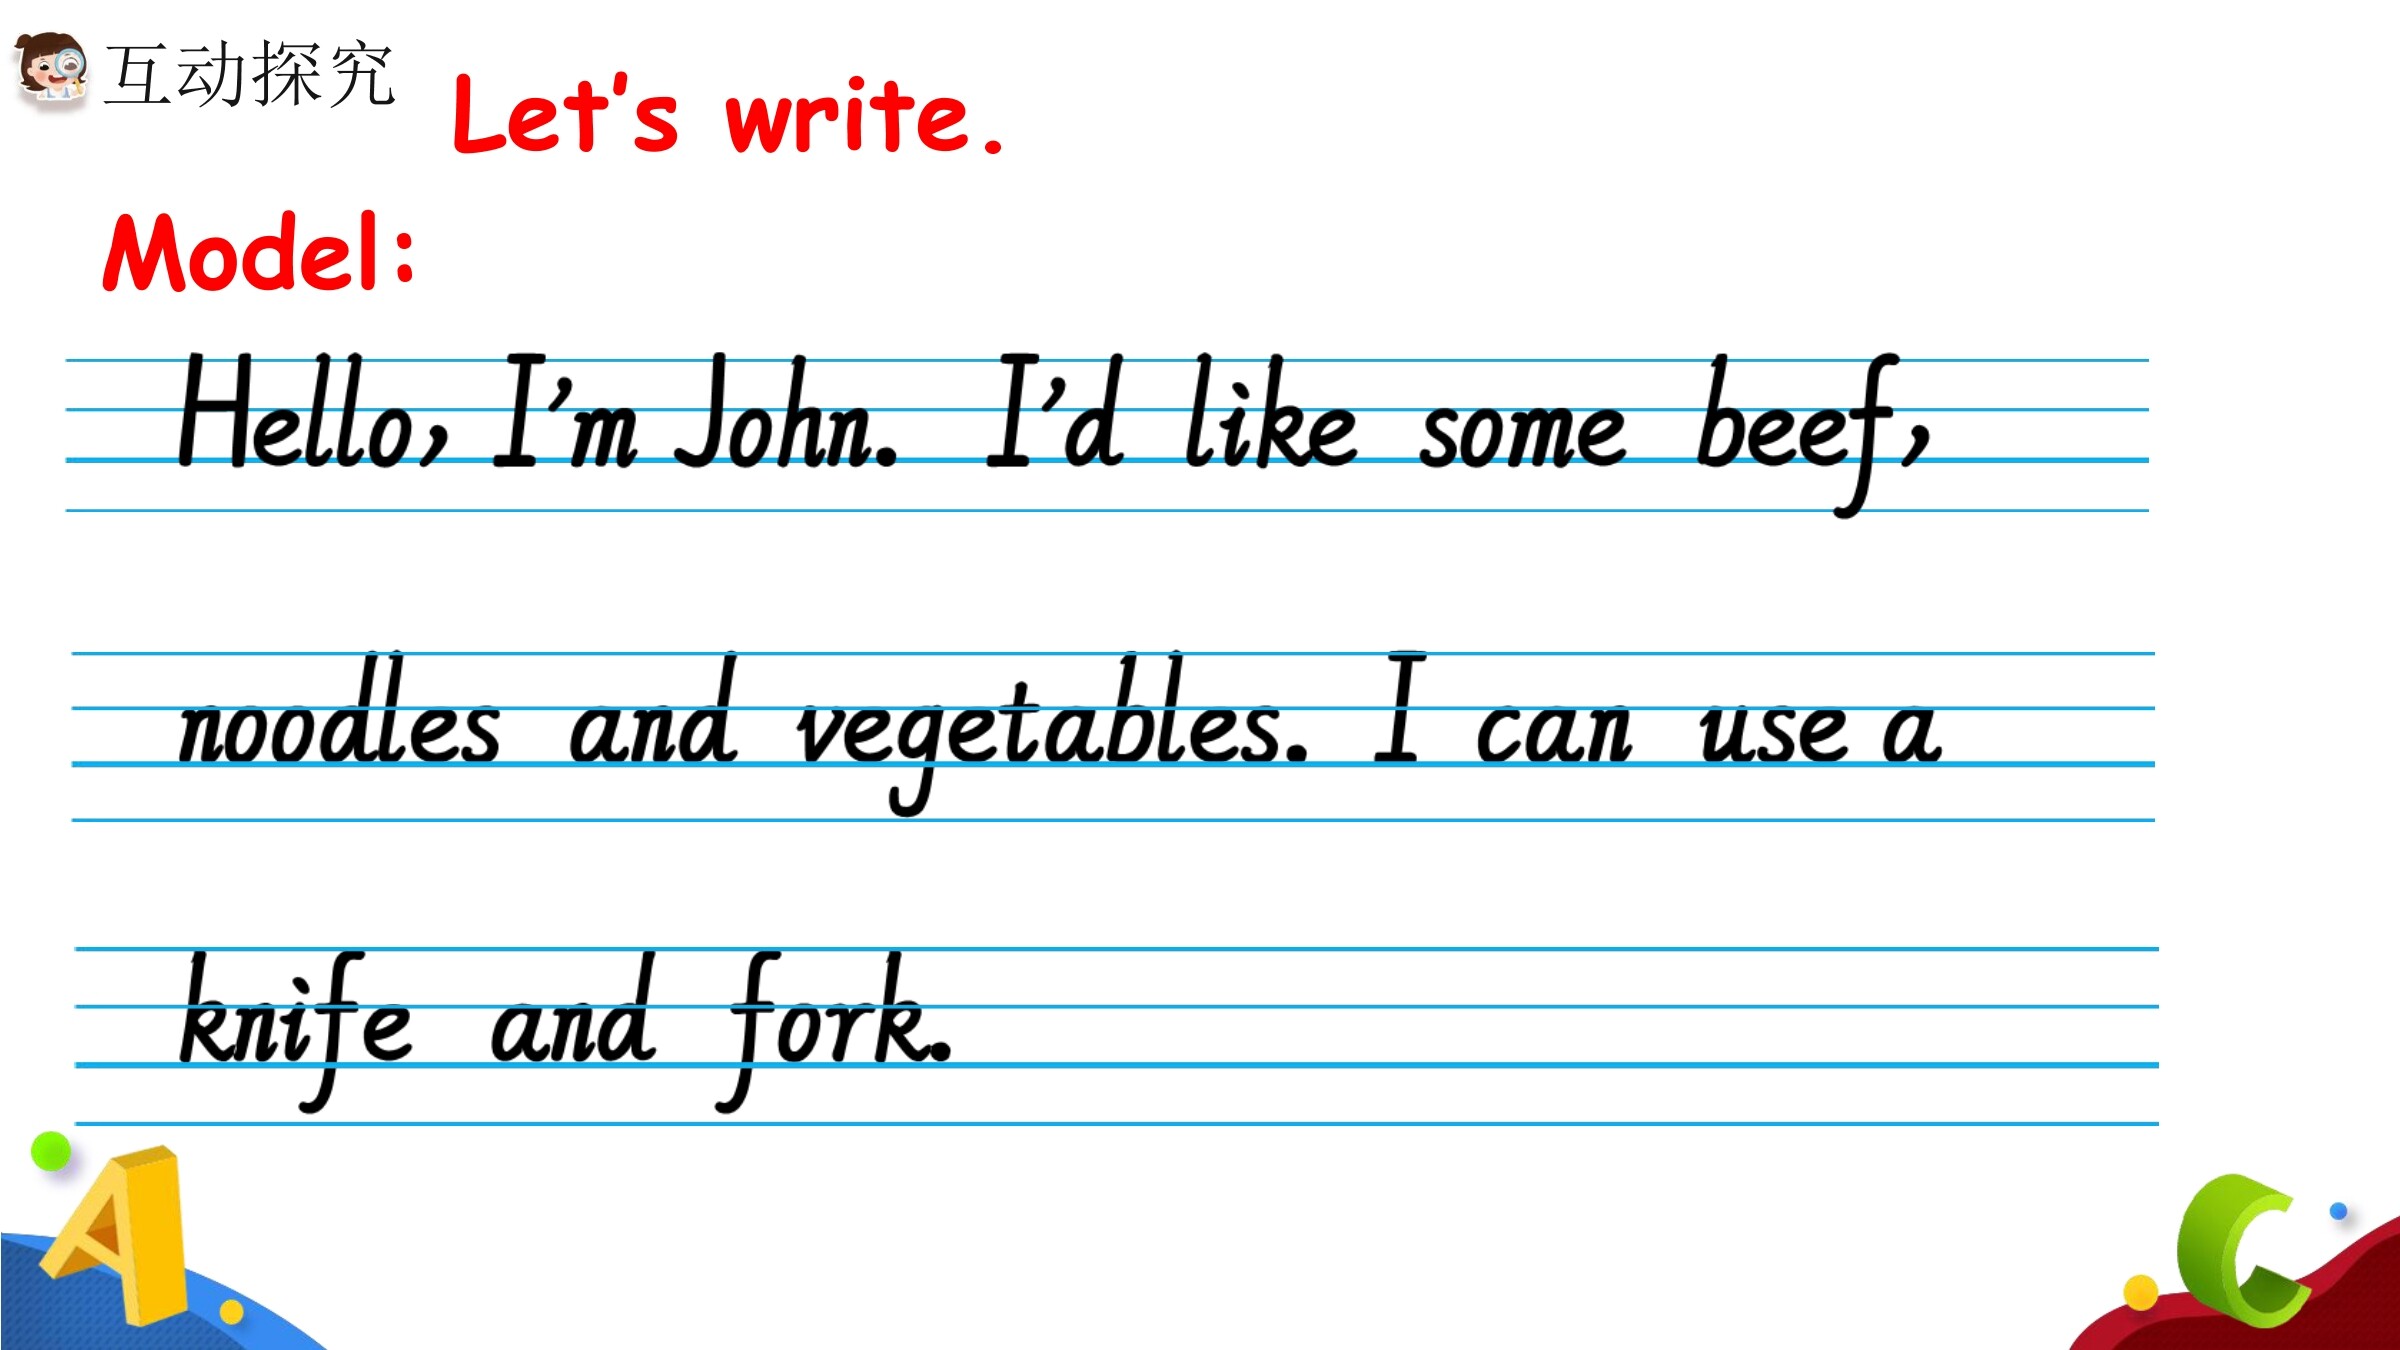 互动探究
Let's write.
Model:
Hello, I'm John. I'd like some beef,
noodles and vegetables. I can use a
knife and fork.